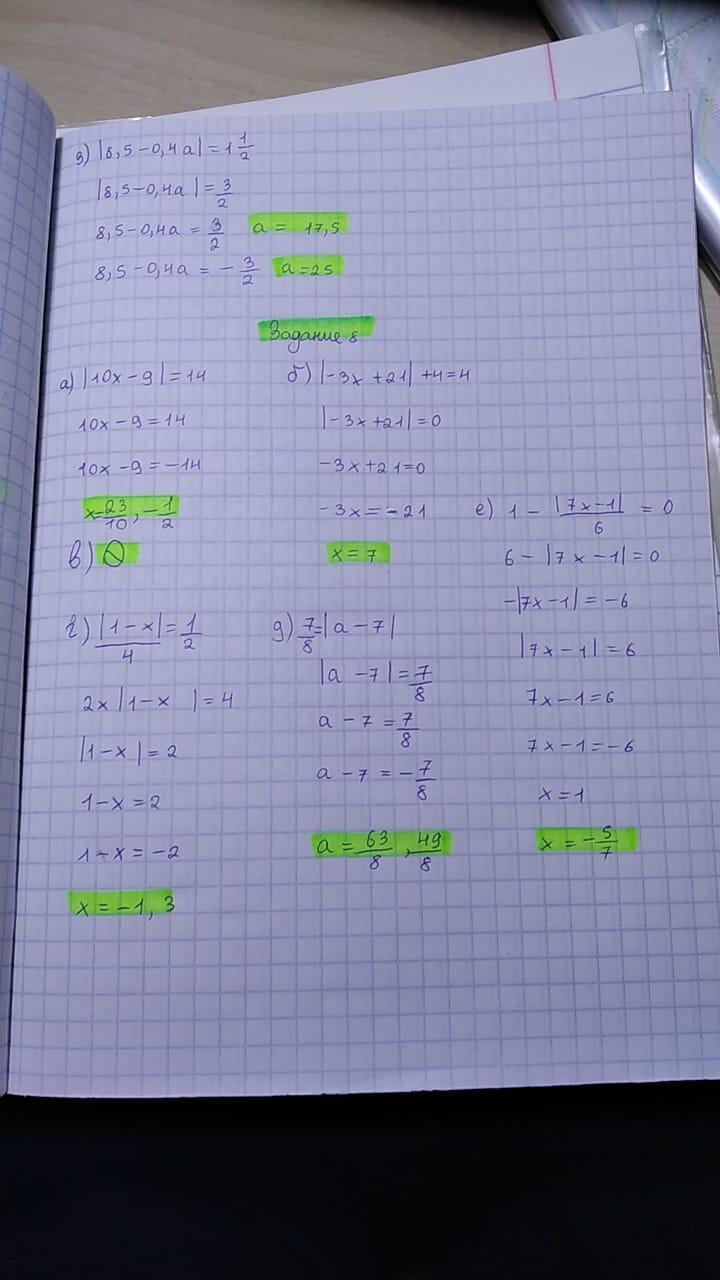 з) |8,5-0,4a|=1 1/2
|8,5-0,4a|=3/2
8,5-0,4a = 3/2 a = 17,5
8,5-0,4a = -3/2 a=25
Задание 8
а) |10x-9|=14
10x-9=14
10x-9=-14
x=23/10, -1/2
б) |-3x+21|+4=4
|-3x+21|=0
-3x+21=0
-3x=-21
x=7
в) ∅
г) |1-x|/4=1/2
2x|1-x |=4
|1-x|=2
1-x=2
1-x=-2
x=-1, 3
д) 7/8=|a-7|
|a-7|=7/8
a-7=7/8
a-7=-7/8
a=63/8, 49/8
е) 1-|7x-1|/6 = 0
6-|7x-1|=0
-|7x-1|=-6
|7x-1|=6
7x-1=6
7x-1=-6
x=1
x=-5/7